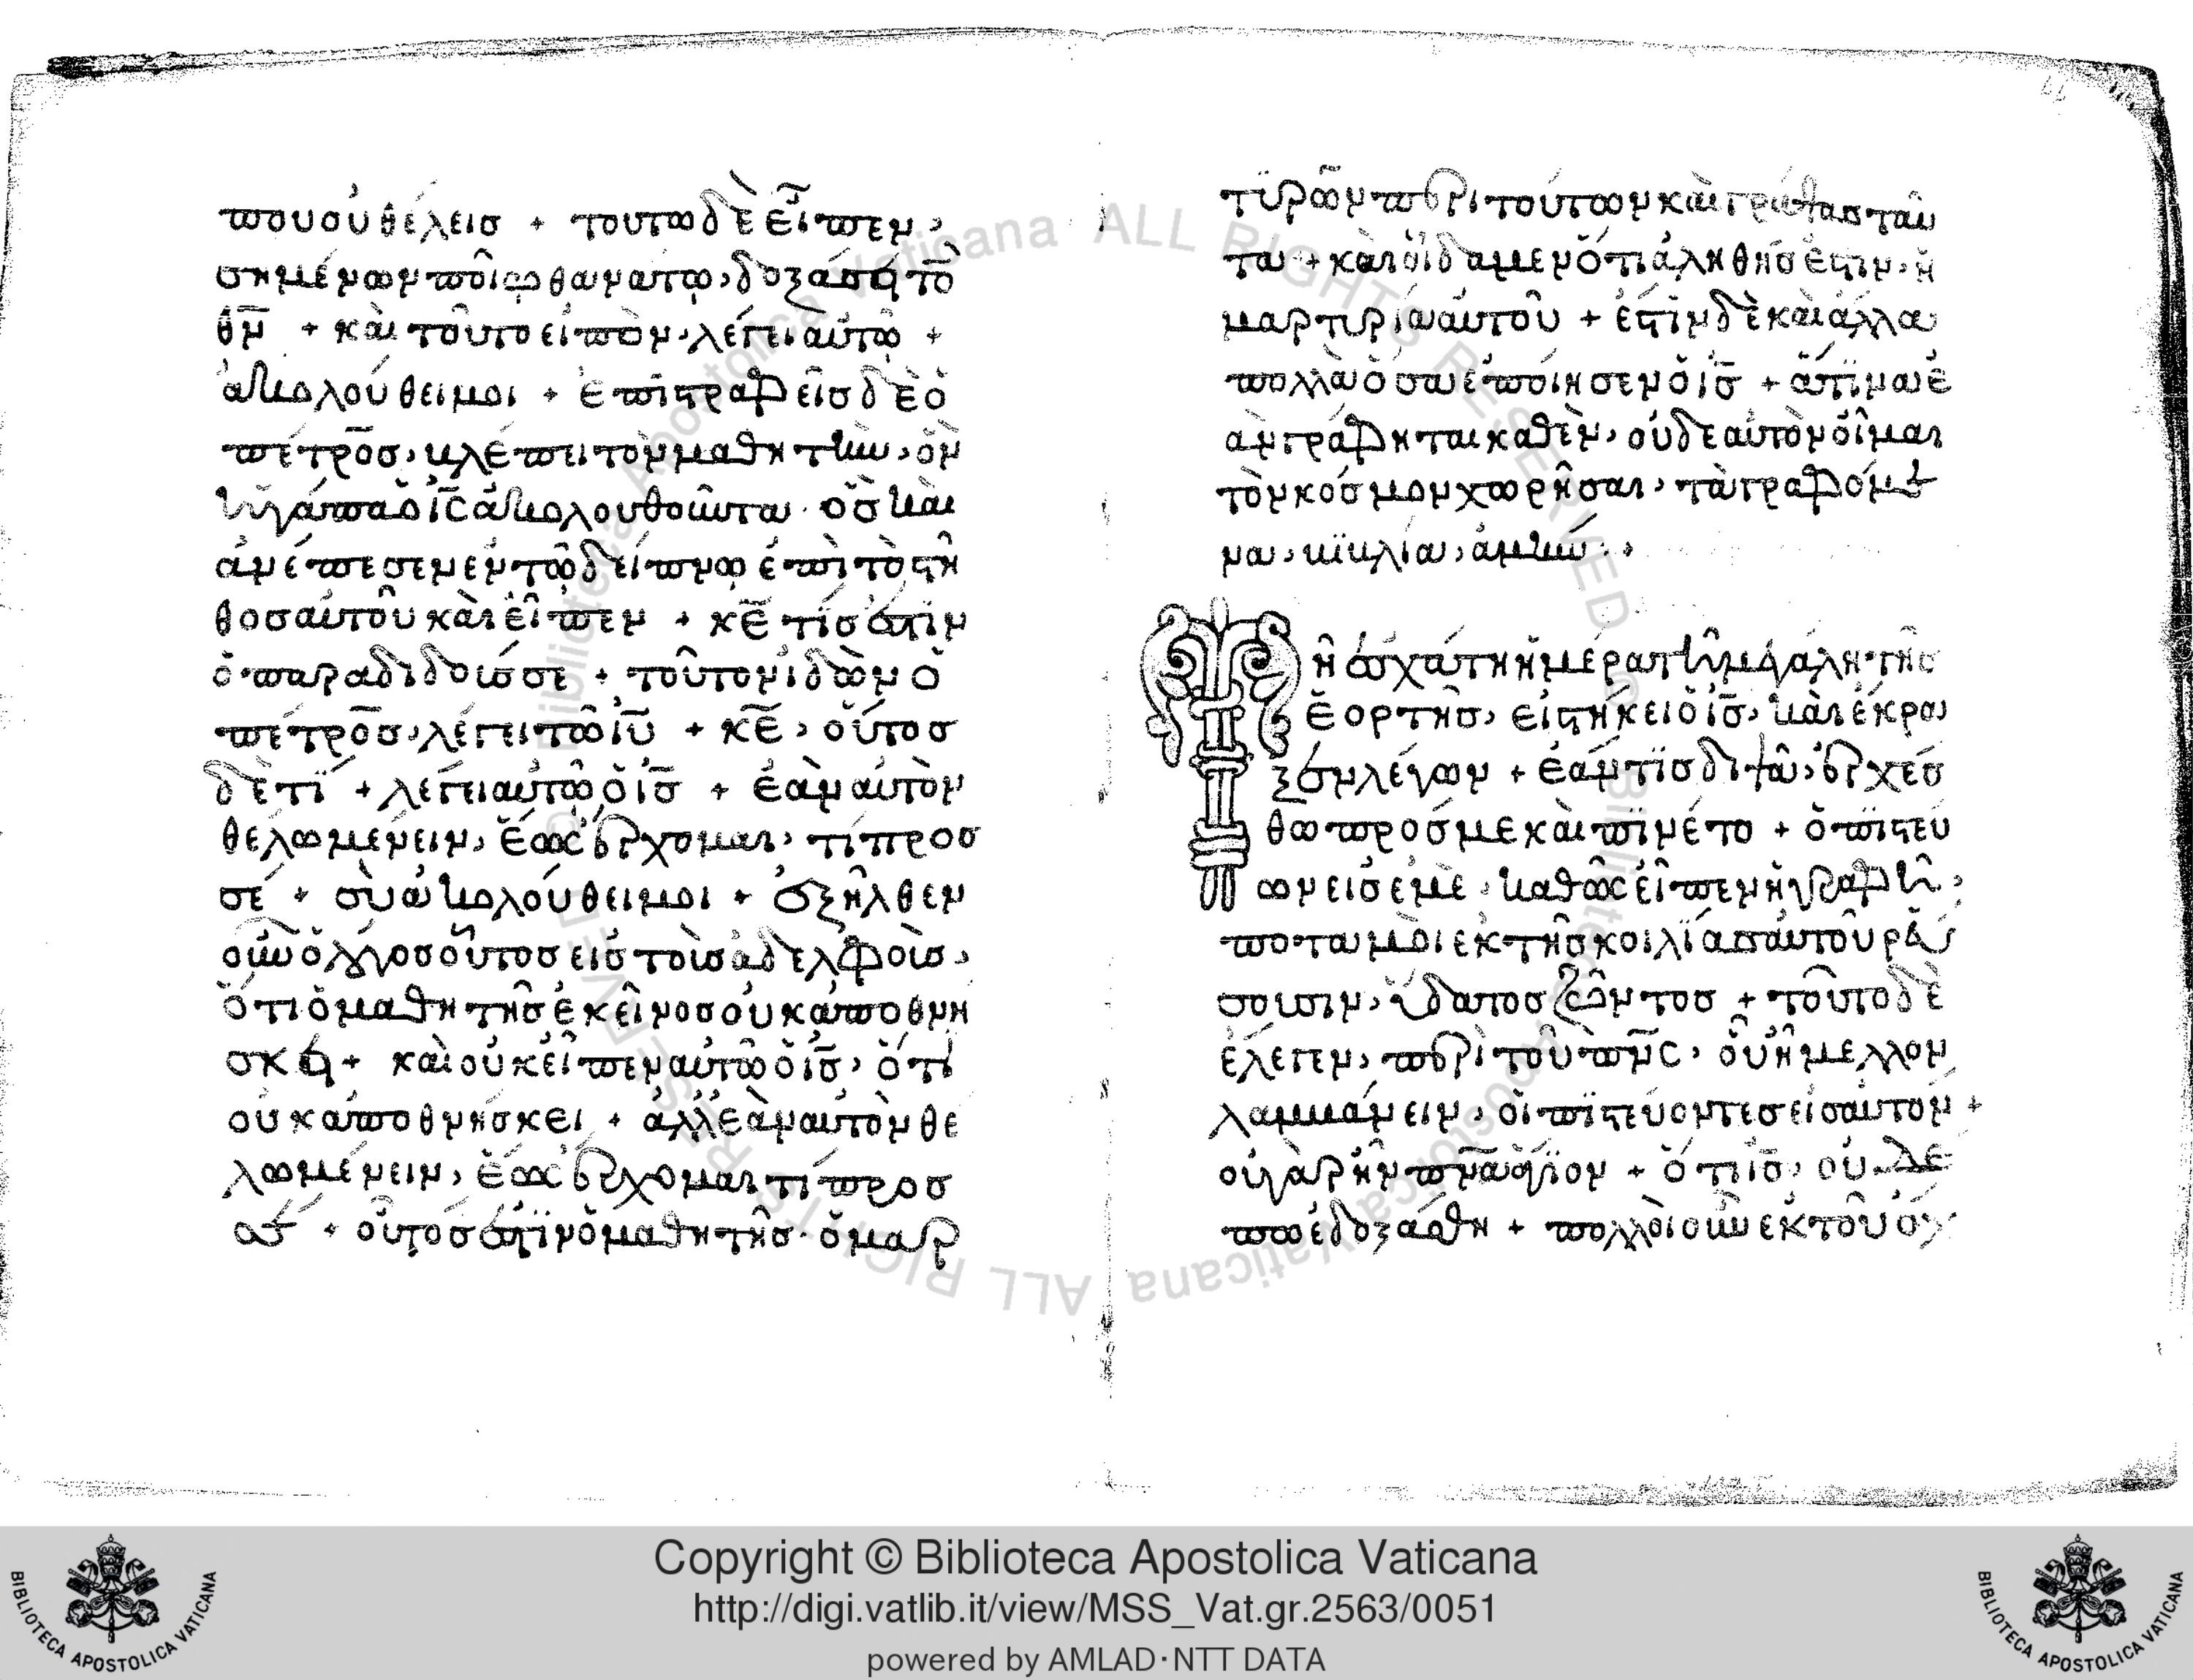 που οὐ θέλεις + τουτω δὲ εἶπεν,
σημένων ποίω θανάτω, δοξάσει τὸ
θν + καὶ τοῦτο εἰπὼν, λέγει αὐτῶ +
ἀκολούθει μοι + ἐπιστραφεὶς δὲ ὁ
πέτρος, κλέπει τὸν μαθητὴν, ὃν
ἠγάπα ὁ ις ἀκολουθοῦντα · ὃς καὶ
ἀνέπεσεν ἐν τῶ δείπνω ἐπὶ τὸ στῆ
θος αὐτοῦ καὶ εἶπεν + κε τίς ἐστιν
ὁ παραδιδούς σε + τοῦτον ἰδὼν ὁ
πέτρος, λέγει τῶ ιυ + κε, οὗτος
δὲ τί + λέγει αὐτῶ ὁ ις + ἐὰν αὐτὸν
θέλω μένειν, ἕως ἔρχομαι, τί προς
σέ + σὺ ἀκολούθει μοι + ἐξῆλθεν
οὖν ὁ λόγος οὗτος εἰς τοὺς ἀδελφοὺς,
ὅτι ὁ μαθητὴς ἐκεῖνος οὐκ ἀποθνη
σκει + καὶ οὐκ εἶπεν αὐτῶ ὁ ις, ὅτι
οὐκ ἀποθνήσκει + ἀλλ ἐὰν αὐτὸν θέ
λω μένειν, ἕως ἔρχομαι τί προς
σέ + οὗτός ἐστϊν ὁ μαθητὴς · ὁ μαρ
τϋρῶν περὶ τούτων καὶ γράψας ταῦ
τα + καὶ οἴδαμεν ὅτι ἀληθής ἐστιν, ἡ
μαρτυρία αὐτοῦ + ἔστιν δὲ καὶ ἄλλα
πολλὰ ὅσα ἐποίησεν ὁ ις + ἅτινα ἐ
ὰν γράφηται καθἓν, οὐδε αὐτὸν οἶμαι
τὸν κόσμον χωρῆσαι, τὰ γραφόμε
να, κϊκλία, ἀμήν · ,
Τῆ ἐσχάτη ἡμέρα τῆ μεγάλη τῆς
ἑορτῆς, εἱστήκει ὁ ις, καὶ ἔκρα
ξεν λέγων + ἐάν τϊς διψᾶ, ἐρχέσ
θω προς με καὶ πινέτο + ὁ πϊστεύ
ων εἰς ἐμὲ, καθὼς εἶπεν ἡ γραφὴ,
ποταμοὶ ἐκ τῆς κοιλϊας αὐτοῦ ρεύ
σουσιν, ὕδατος ζῶντος + τοῦτο δὲ
ἔλεγεν, περὶ τοῦ πνς, οὗ ἤμελλον
λαμμάνειν, οἱ πϊστεύοντες εἰς αὐτον +
οὐγὰρ ἦν πνα ἅγϊον + ὅτι ις, οὐδέ
πω ἐδοξάσθη + πολλοὶ οὖν ἐκ τοῦ ὄχ
Copyright © Biblioteca Apostolica Vaticana
http://digi.vatlib.it/view/MSS_Vat.gr.2563/0051
powered by AMLAD·NTT DATA
BIBLIOTECA APOSTOLICA VATICANA
BIBLIOTECA APOSTOLICA VATICANA